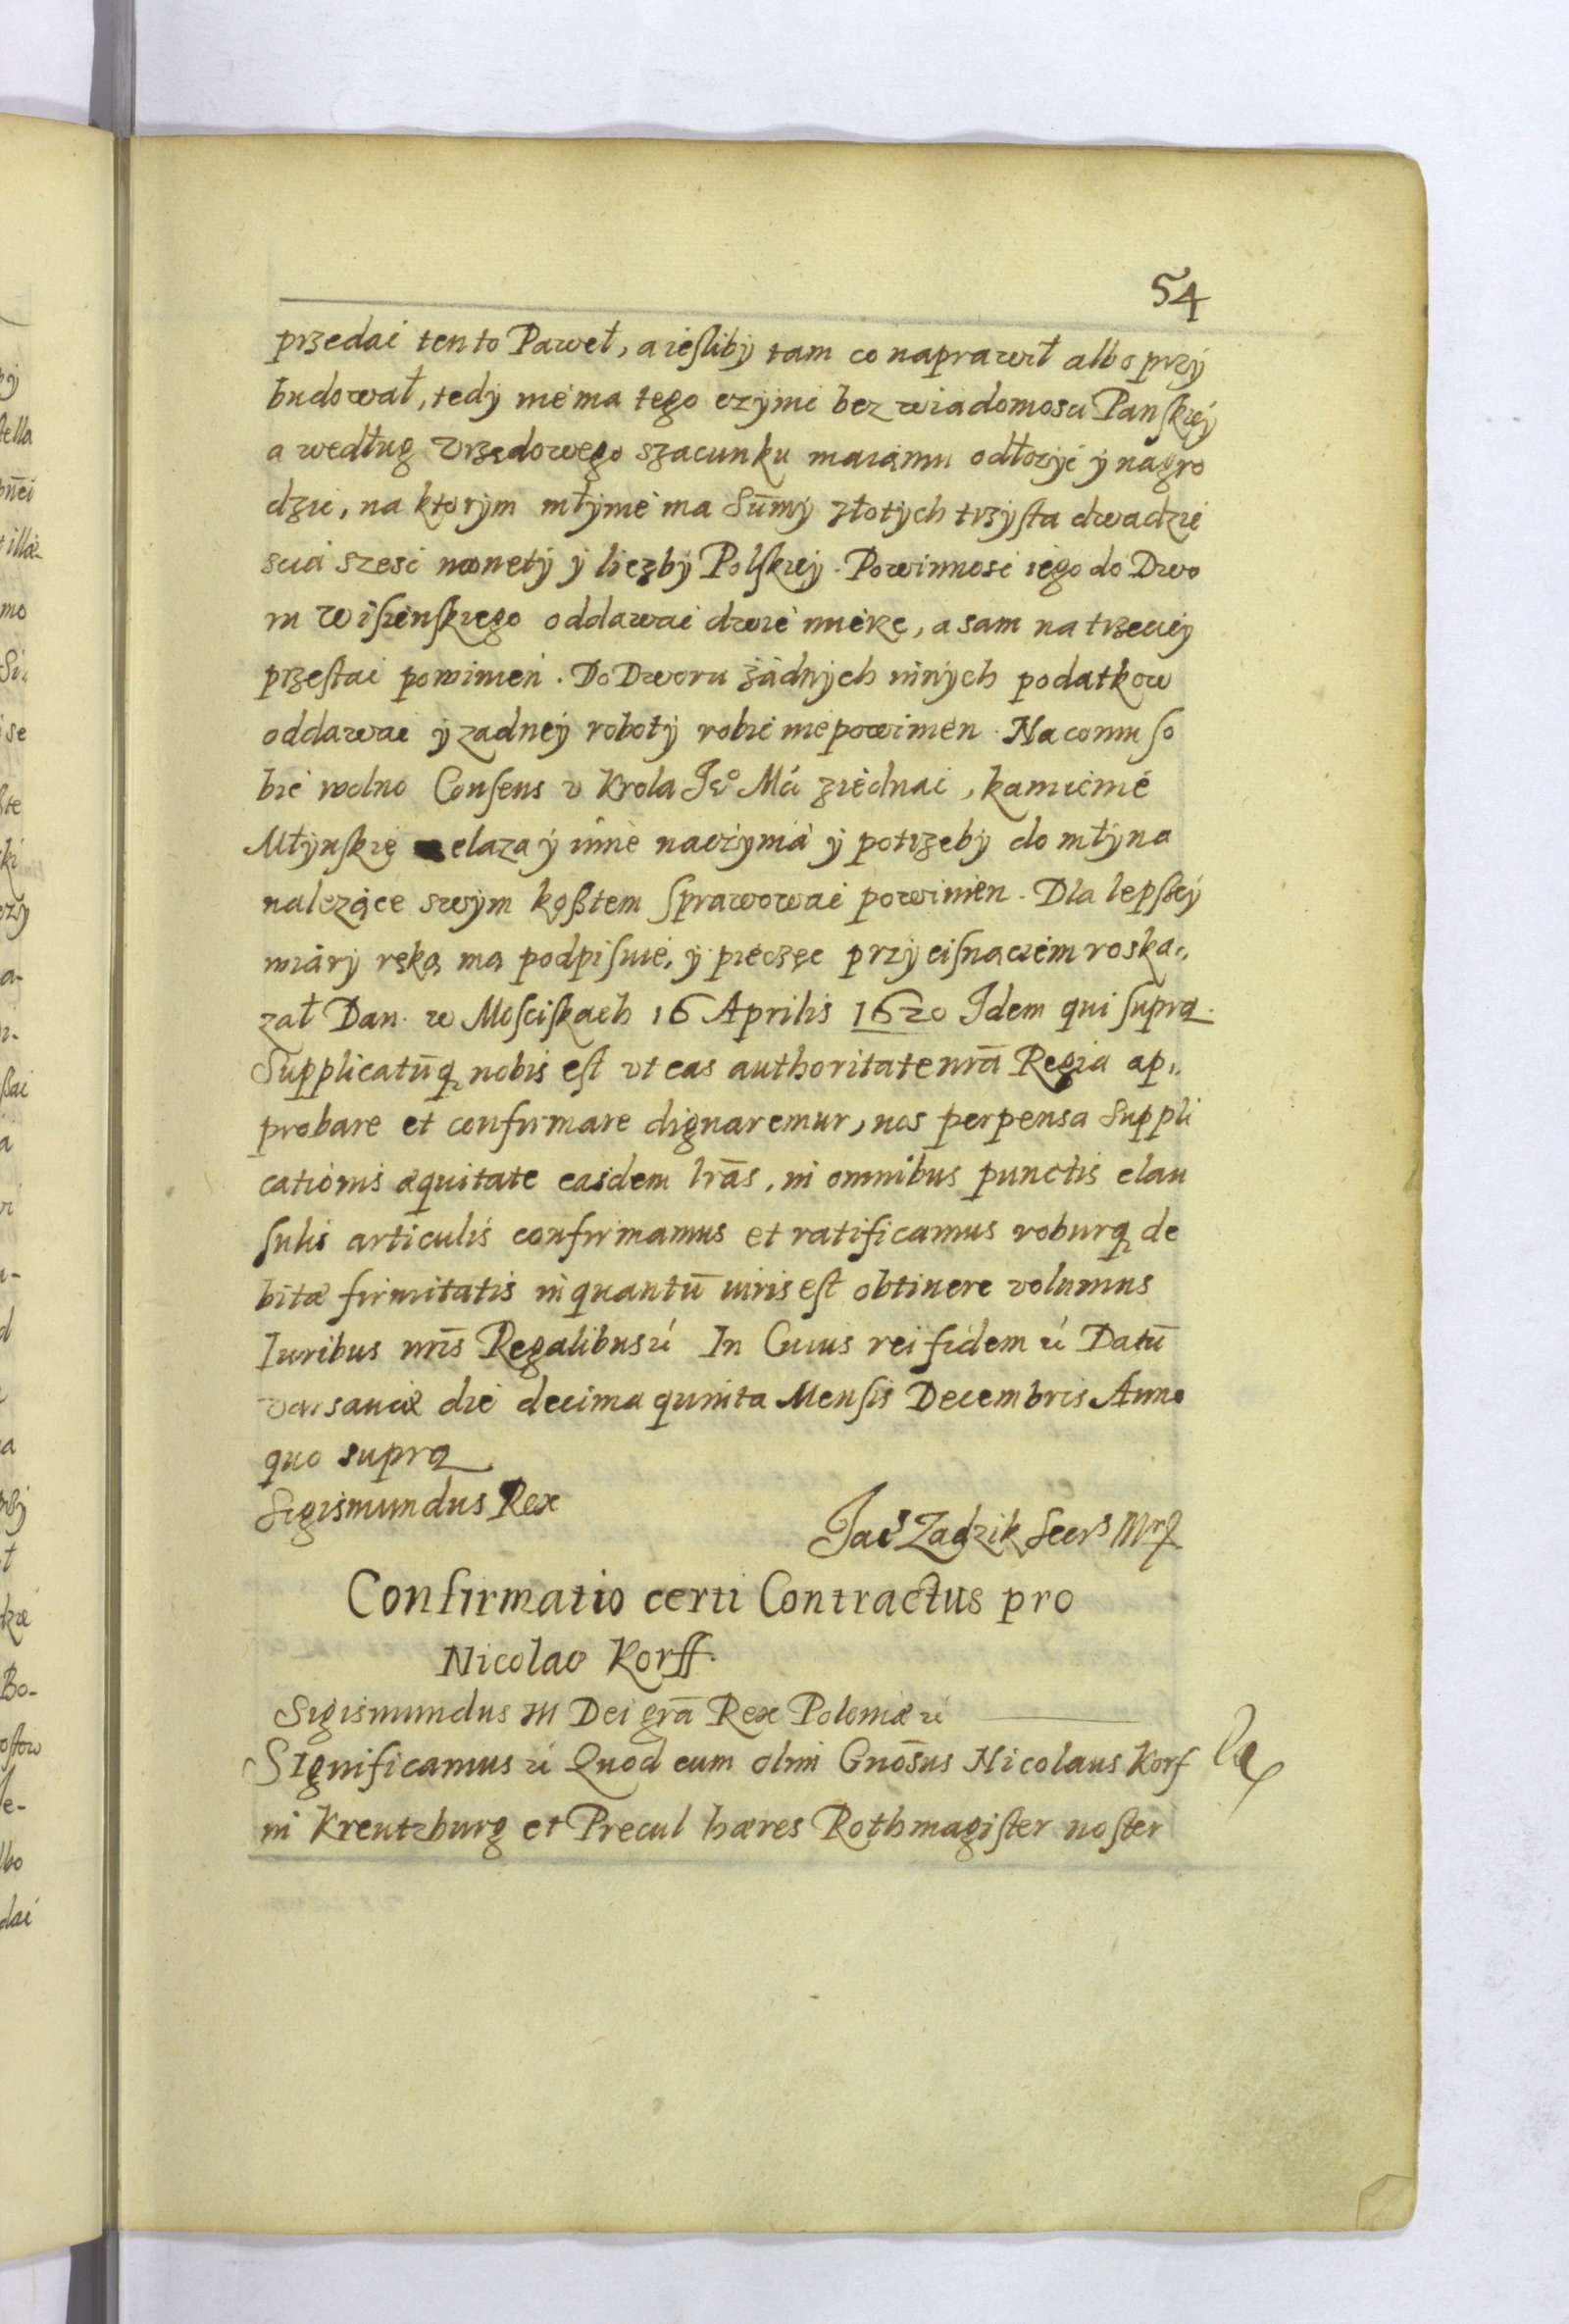 54
przedać ten to Paweł, a ieſliby tam co naprawił albo przÿ
budował, tedÿ nié ma tego czÿnić bez wiadomosci Panſkiéÿ
a według vrzędowego szacunku maiąmu odłożÿć ÿ nagro
dzić, na ktorÿm młÿnié ma Sūmÿ złotÿch trzÿſta dwadzie
scia szesć monetÿ ÿ liczbÿ Polſkieÿ. Powinność iego do Dwo
ru Wiſienſkiego oddawać dwié mierzę, a sam na trzecieÿ
przeſtać powinien. Do Dworu żádnÿch innÿch podatkow
oddawać ÿ zadneÿ robotÿ robić niepowinien. Na co mu ſo
bie wolno Conſens v Krola Jeº Mći ziednać, kamienié
Młÿnſkie elaza ÿ inne naczÿnia ÿ potrzebÿ do młÿna
nalezące swÿm koßtem ſprawować powinien. Dla lepſzeÿ
wiárÿ ręką ma podpiſuie, ÿ pieczęc przÿciſnąciem roska,,
zał Dan. w Moſciſkach 16 Aprilis 1620 Idem qui ſupra.
Supplicatūq nobis eſt vt eas authoritate nrā Regia ap,,
probare et confirmare dignaremur, nos perpensa Suppli
cationis æquitate easdem lrās, in omnibus punctis clau
ſulis articulis confirmamus et ratificamus roburq de
bitæ firmitatis in quantū iuris eſt obtinere volumus
Iuribus nrīs Regalibus ić In Cuius rei fidem ić Datū
varsaviæ die decima quinta Menſis Decembris Anno
quo supra
Sigismundus Rex
Jacs Zadzik Secrs Mrp
Confirmatio certi Contractus pro
Nicolao Korff.
Sigismundus III Dei grā Rex Poloniæ ić
SIgnificamus ić Quod cum olim Gnōsus Nicolaus Korf
in Kreutzburg et Precul hæres Rothmagiſter noſter